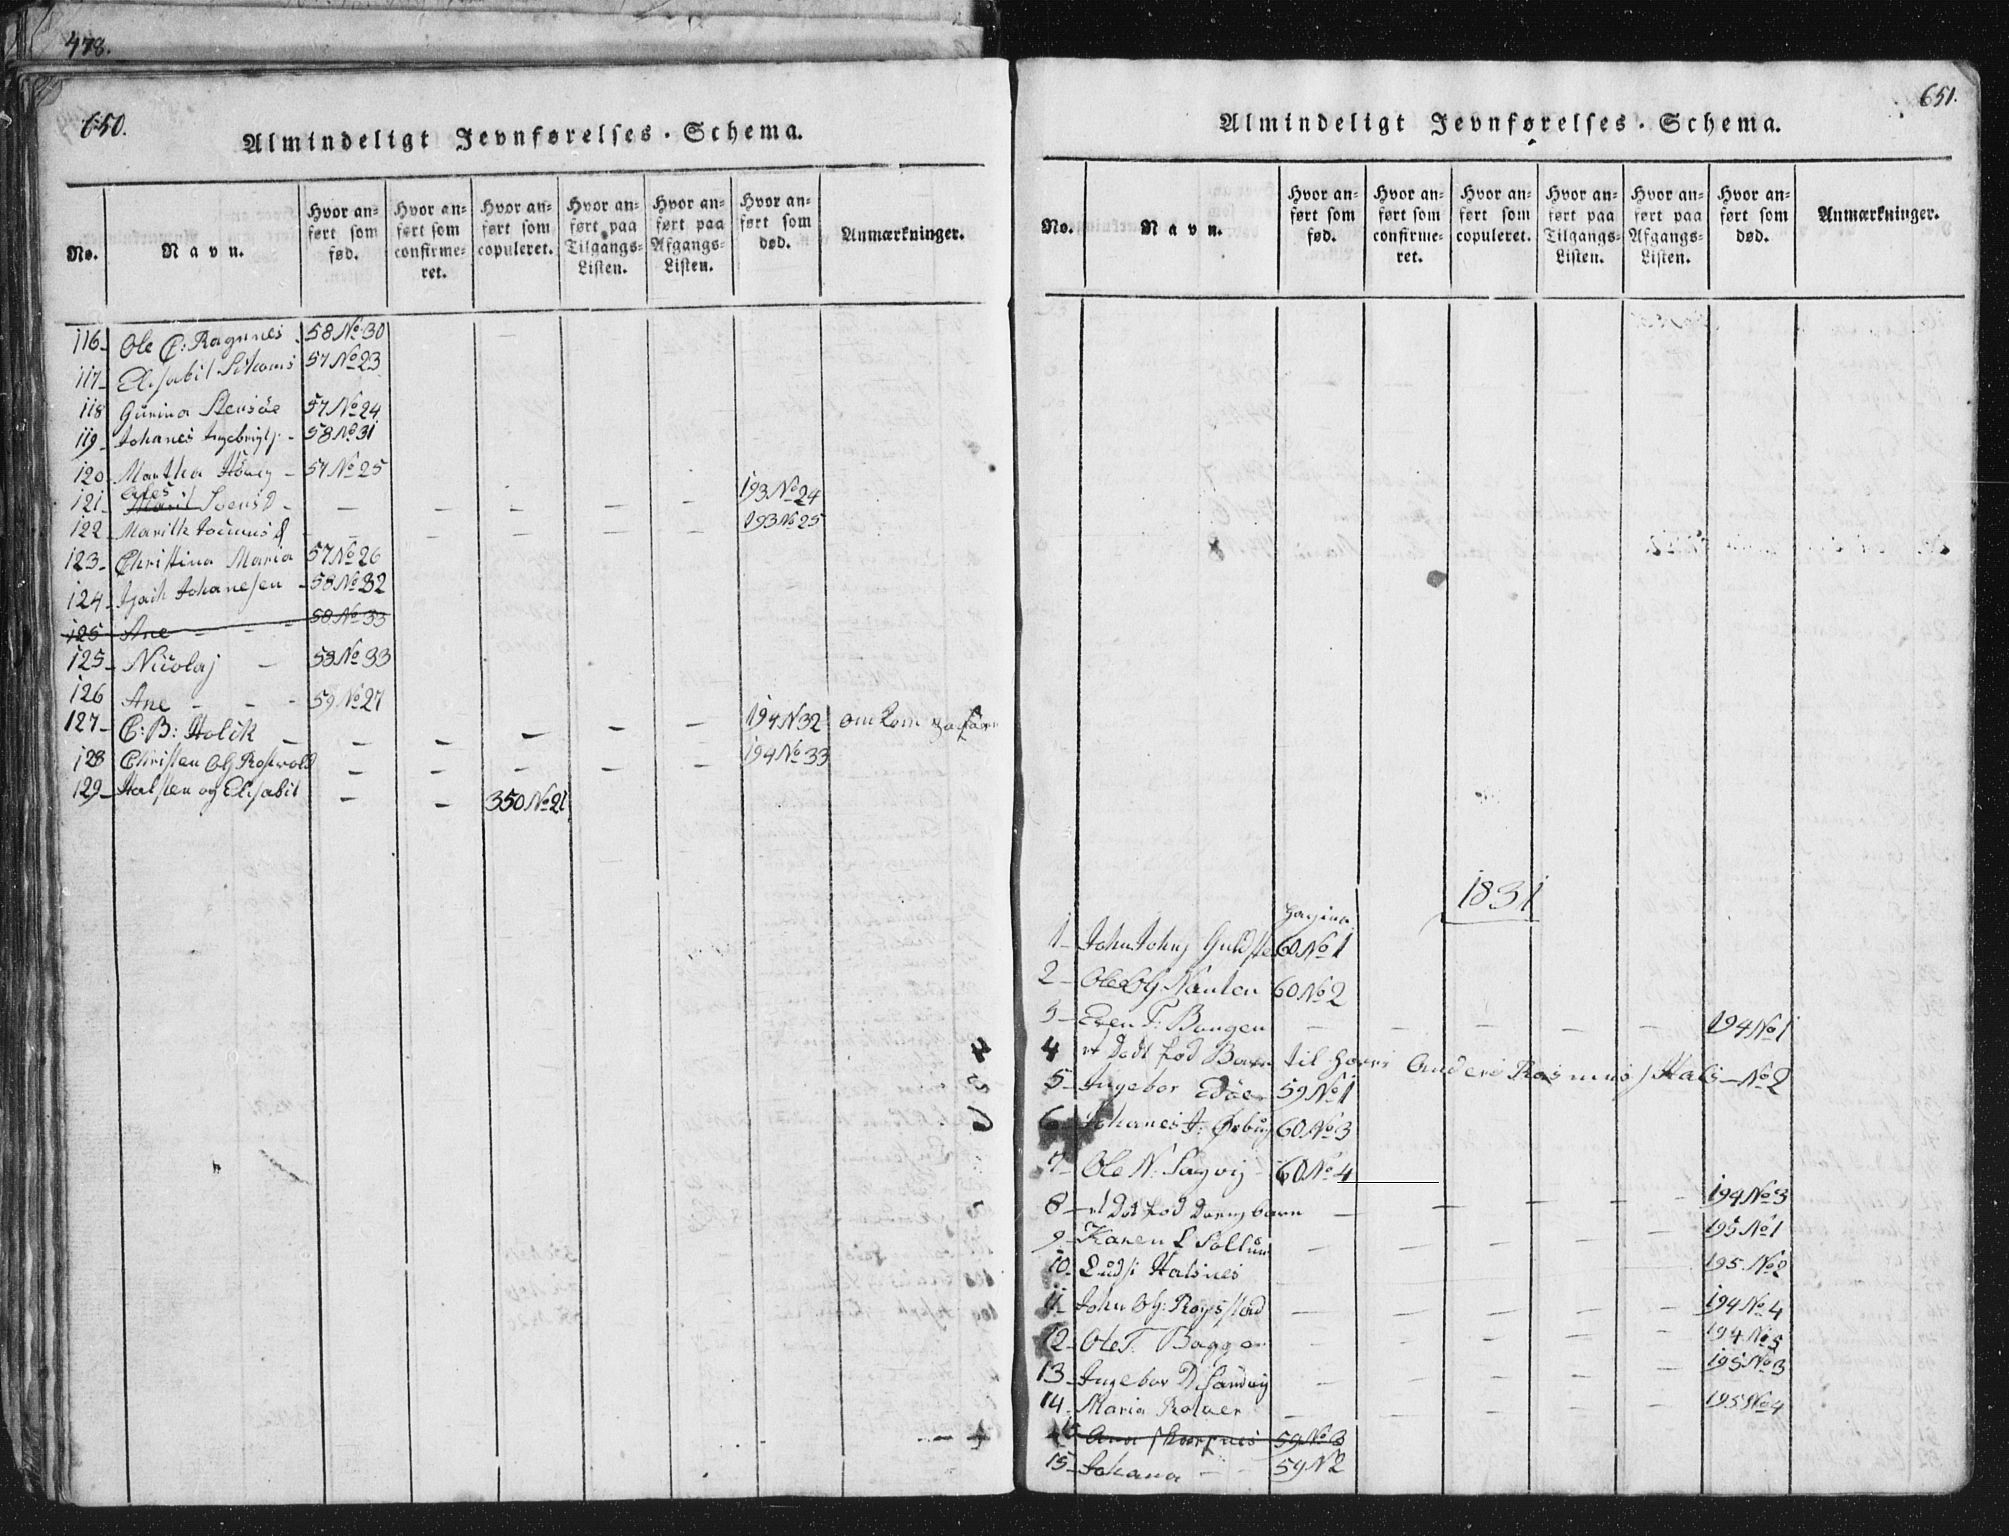 478.
650.
Almindeligt Jevnførelses-Schema.
No.
Navn.
Hvor anført som fød.
Hvor anført som confirmeret.
Hvor anført som copuleret.
Hvor anført paa Tilgangs-Listen.
Hvor anført paa Afgangs-Listen.
Hvor anført som død.
Anmærkninger.
116 Ole C: Ragnnes 58 No 30
117 Elisabit 57 No 23
118 Gurina Stensöe 57 No 24
119 Johanes Ingebrigtj. 58 No 31
120 Martha 57 No 25
121 Marit Soens D 193 No 24
122 Marith 193 No 25
123 Christina Maria 57 No 26
124 Johanesen 58 No 32
125 Ane 58 No 33
125 Nicolaj 58 No 33
126 Ane 59 No 27
127 C: B: Holck 194 N 32 omkom
128 Christen Ols Roswold 194 No 33
129 Halsten og Elisabit 350 No 21
651.
Almindeligt Jevnførelses-Schema.
No.
Navn.
Hvor anført som fød.
Hvor anført som confirmeret.
Hvor anført som copuleret.
Hvor anført paa Tilgangs-Listen.
Hvor anført paa Afgangs-Listen.
Hvor anført som død.
Anmærkninger.
1831
pagina
1 John Johnj 60 No 1
2 Ole Ols 60 No 2
3 Even T: Bangen 194 No 1
4 et Dødt fød Barn til Anders Rasmus Hals No 2
5 Ingebor Edöe 59 No 1
6 Johanes J: 60 No 3
7 Ole N: Sagvig 60 No 4
8 et Död fød barn 194 No 3
9 Karen L Sollum 195 No 1
10 Halsnes 195 No 2
11 John Ols: 194 No 4
12 Ole T. Bagge 194 No 5
13 Ingebor D Sandvig 195 No 3
14 Maria 195 No 4
Ana 59 No 3
15 Johana 59 N 2